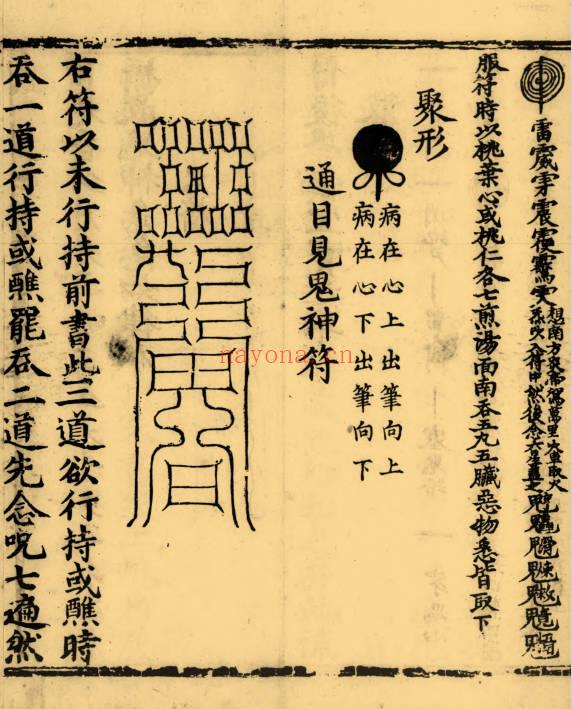 想南方炎帝駕萬里火車取火
炁吹入符中然後念
服符時以桃葉心或桃仁各七煎湯面南吞五丸五臟惡物悉皆取下
聚形
病在心上出筆向上
病在心下出筆向下
通目見鬼神符
右符以未行持前書此三道欲行持或醮時
吞一道行持或醮罷吞二道先念呪七遍然
nayona.cn